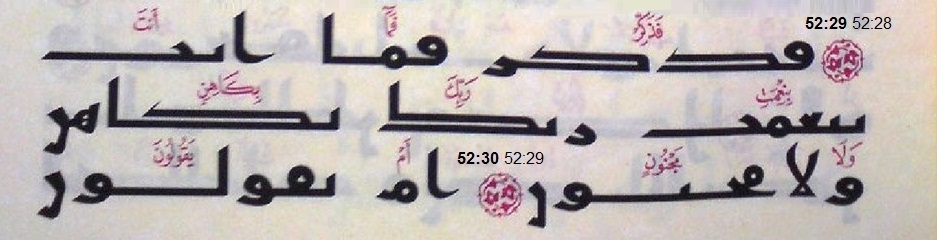 52:29 52:28
فَذَكِّرْ فَمَا أَنتَ
فذكر فما انت
بِنِعْمَتِ رَبِّكَ بِكَاهِنٍ
بنعمت ربك بكاهن
وَلَا مَجْنُونٍ 52:30 52:29 أَمْ يَقُولُونَ
ولا مجنون ام يقولون